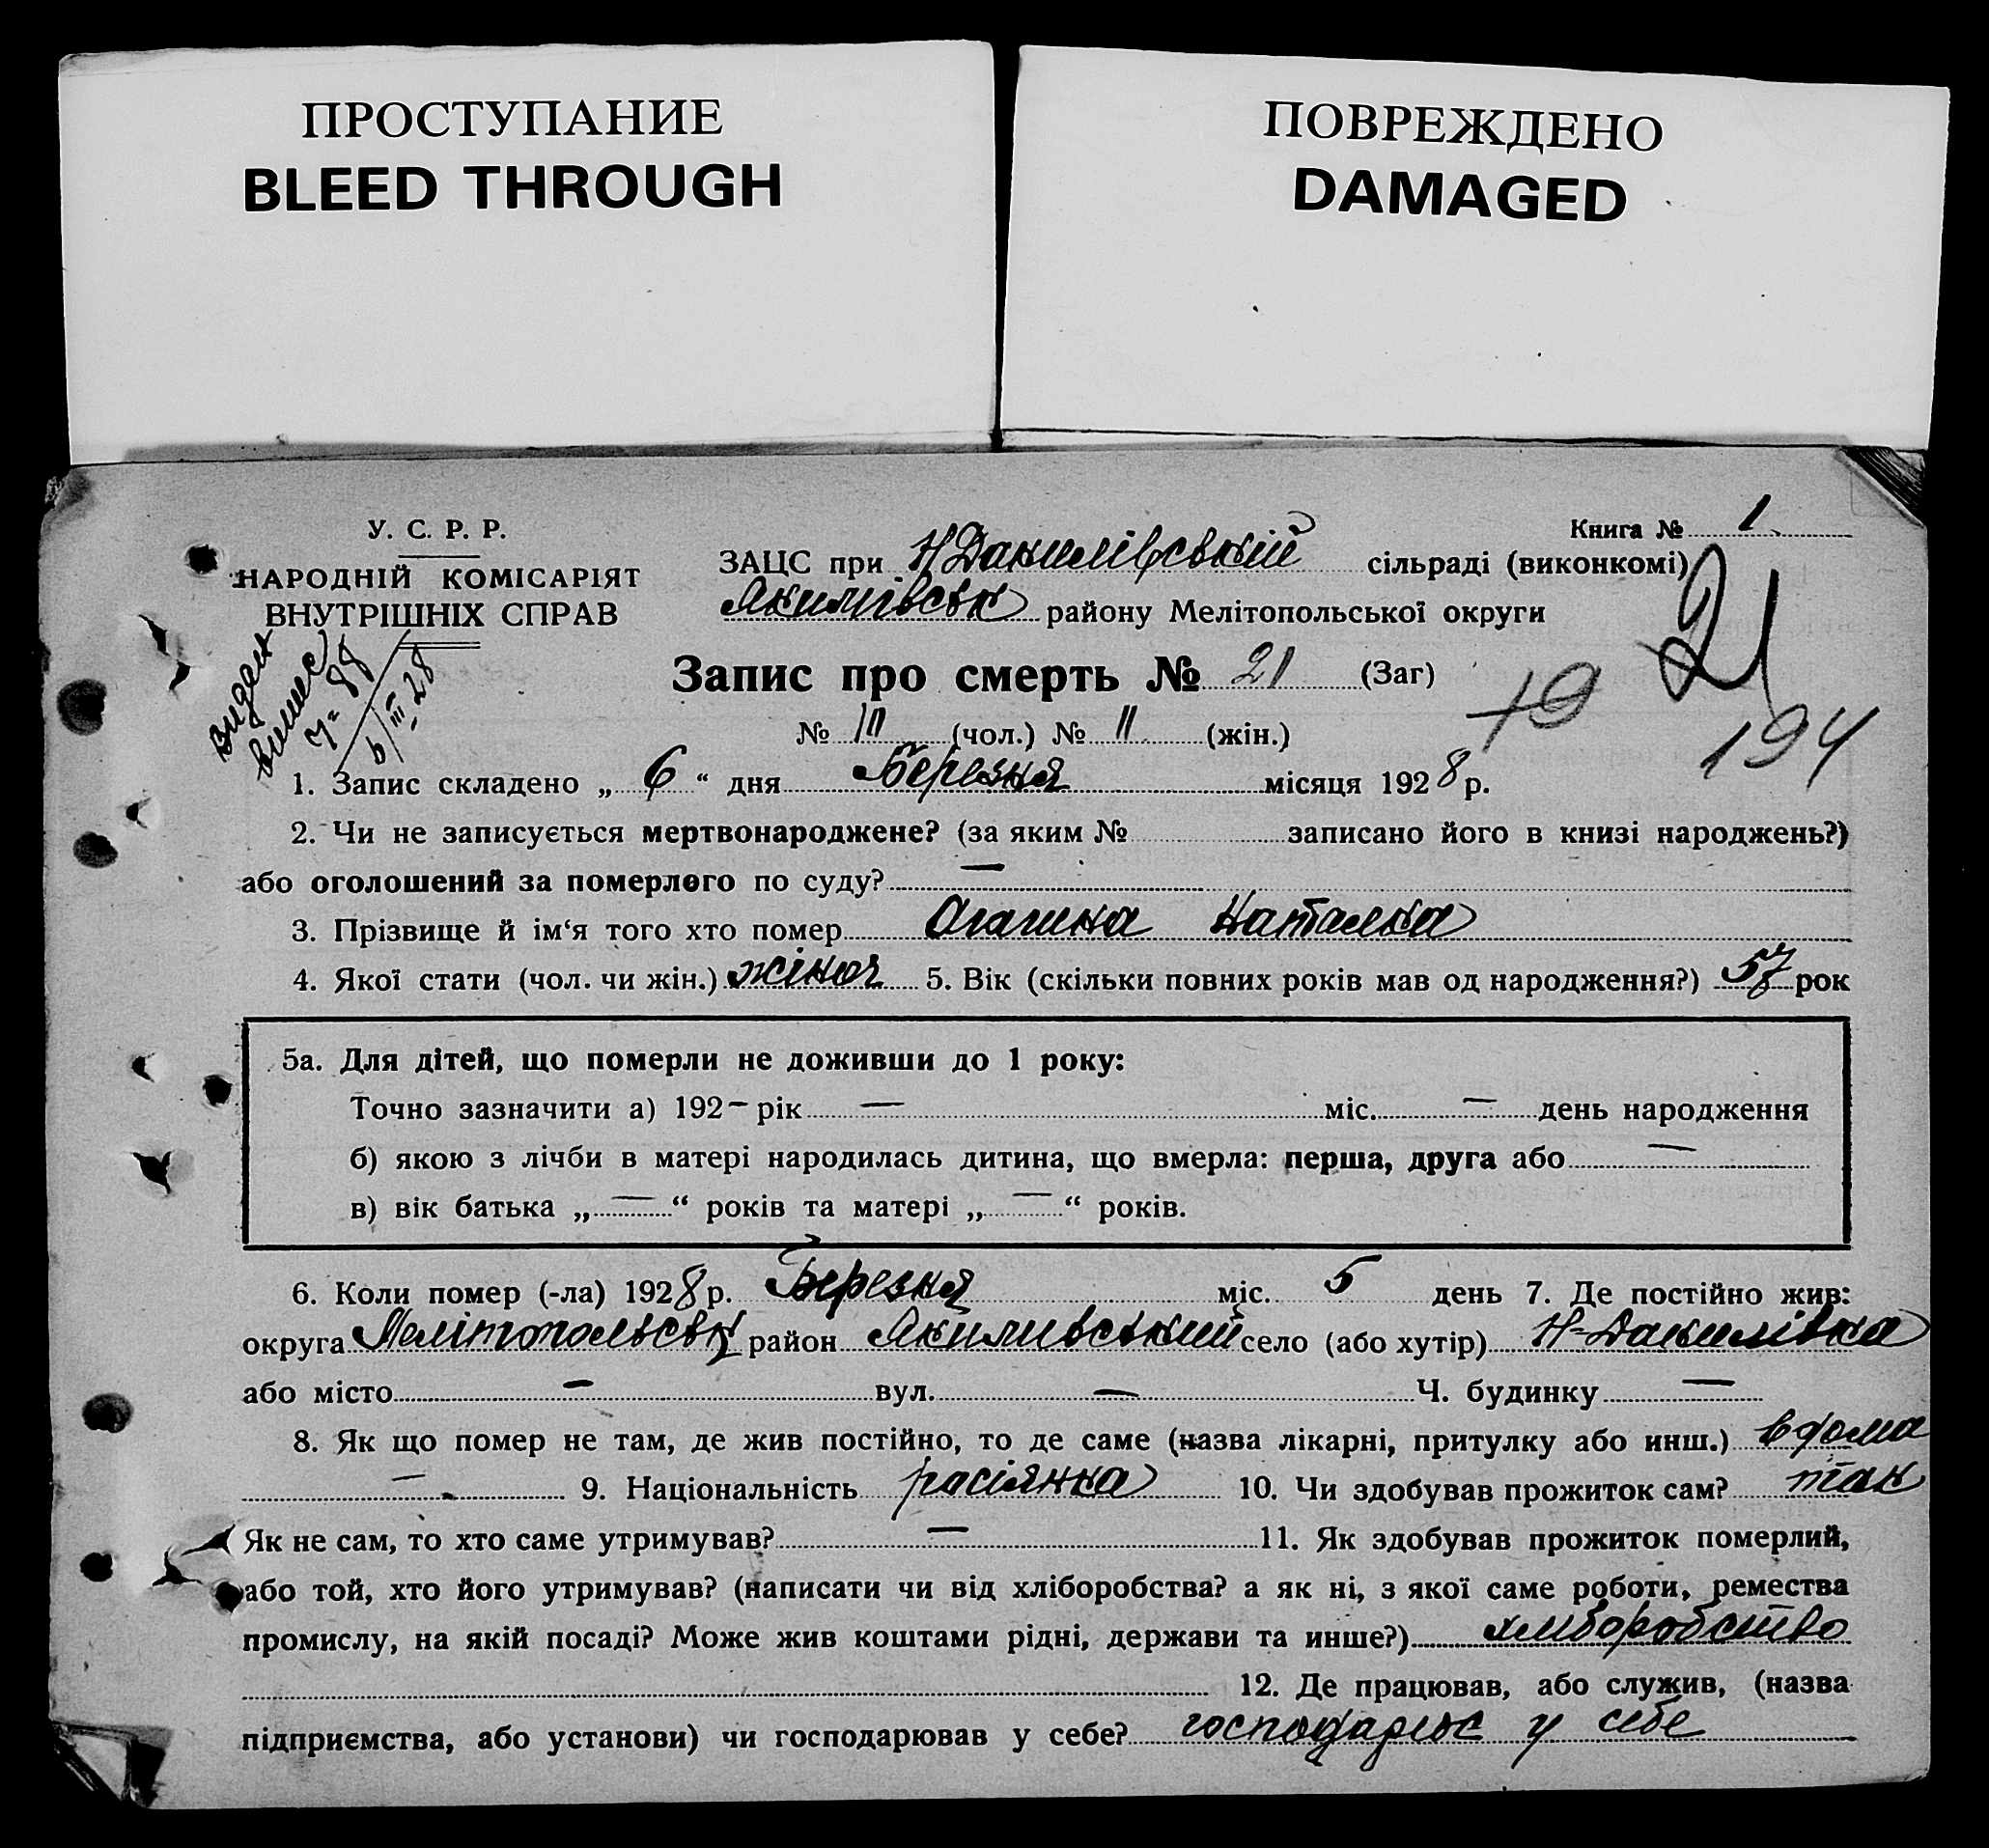 ПРОСТУПАНИЕ
BLEED THROUGH
ПОВРЕЖДЕНО
DAMAGED
Книга № 1
У. С. Р. Р.
НАРОДНІЙ КОМІСАРІЯТ
ВНУТРІШНІХ СПРАВ
ЗАЦС при Н Данилівській сільраді (виконкомі)
Якимівськ району Мелітопольської округи
21
Видан
7= 88
6/III 28
Запис про смерть № 21 (Заг)
19
194
№ (чол.) № 11 (жін.)
1. Запис складено „ 6 “ дня Березня місяця 1928 р.
2. Чи не записується мертвонароджене? (за яким № записано його в книзі народжень?)
або оголошений за померлого по суду? —
3. Прізвище й ім‘я того хто помер Наталка
4. Якої стати (чол. чи жін.) жіноч 5. Вік (скільки повних років мав од народження?) 57 рок
5а. Для дітей, що померли не доживши до 1 року:
Точно зазначити а) 192— рік — міс. — день народження
б) якою з лічби в матері народилась дитина, що вмерла: перша, друга або —
в) вік батька „ — “ років та матері „ — “ років.
6. Коли помер (-ла) 1928 р. Березня міс. 5 день 7. Де постійно жив:
округа Мелітопольськ район Якимивський село (або хутір) Н-Данилівка
або місто — вул. — Ч. будинку —
8. Як що помер не там, де жив постійно, то де саме (назва лікарні, притулку або инш.) вдома
— 9. Національність росіянка 10. Чи здобував прожиток сам? так
Як не сам, то хто саме утримував? — 11. Як здобував прожиток померлий,
або той, хто його утримував? (написати чи від хліборобства? а як ні, з якої саме роботи, ремества
промислу, на якій посаді? Може жив коштами рідні, держави та инше?) хліборобство
12. Де працював, або служив, (назва
підприємства, або установи) чи господарював у себе? господарює у себе